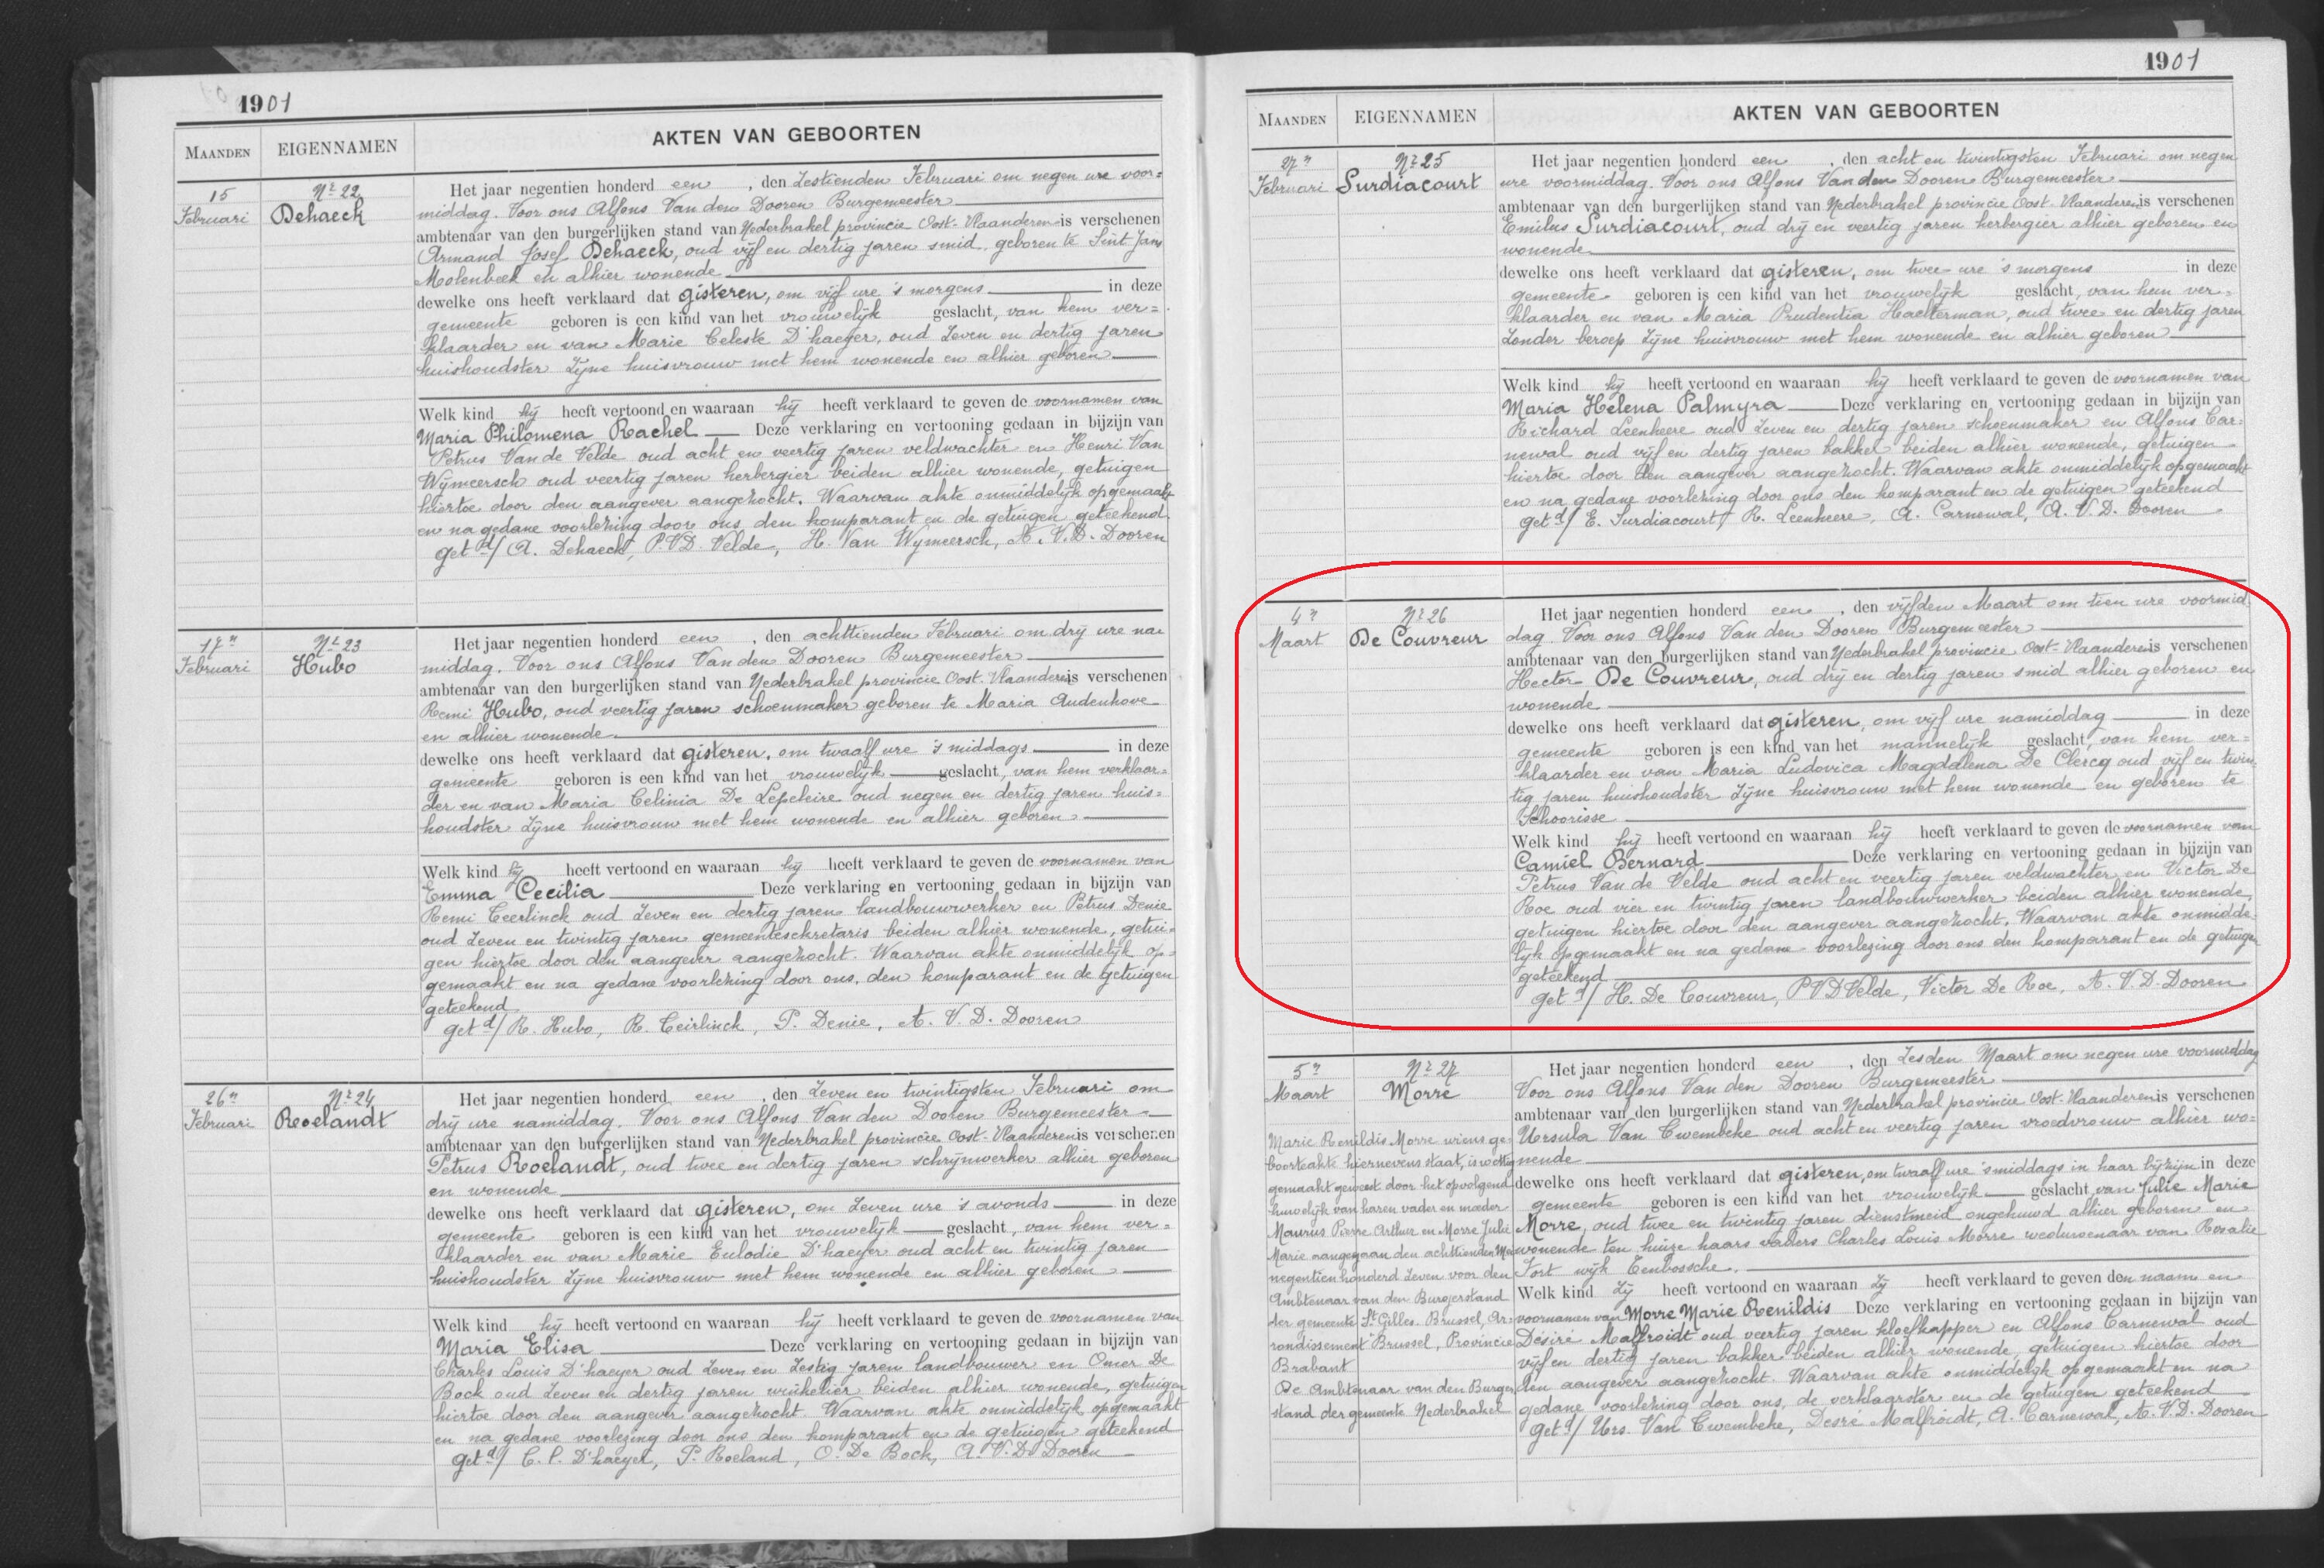 1901
MAANDEN EIGENNAMEN AKTEN VAN GEBOORTEN
15 Februari
Nr 22 Dehaeck
Het jaar negentien honderd een, den zestienden Februari om negen ure voor=
middag. Voor ons Alfons Van den Dooren Burgemeester
ambtenaar van den burgerlijken stand van Nederbrakel provincie Oost-Vlaanderen is verschenen
Armand Josef Dehaeck, oud vijf en dertig jaren smid, geboren te Sint Jans
Molenbeek en alhier wonende
dewelke ons heeft verklaard dat gisteren, om vijf ure 's morgens in deze
gemeente geboren is een kind van het vrouwelijk geslacht, van hem ver=
klaarder en van Marie Celeste D'haeyer, oud zeven en dertig jaren
huishoudster zijne huisvrouw met hem wonende en alhier geboren
Welk kind hij heeft vertoond en waaraan hij heeft verklaard te geven de voornamen van
Maria Philomena Rachel Deze verklaring en vertooning gedaan in bijzijn van
Petrus Van de Velde oud acht en veertig jaren veldwachter en Henri Van
Wymeersch oud veertig jaren herbergier beiden alhier wonende, getuigen
hiertoe door den aangever aangezocht. Waarvan akte onmiddelijk opgemaakt
en na gedane voorlezing door ons, den komparant en de getuigen geteekend.
get d/ A. Dehaeck, P. VD. Velde, H. Van Wymeersch, A. V. D. Dooren
17n Februari
Nr 23 Hubo
Het jaar negentien honderd een, den achttienden Februari om drij ure na
middag. Voor ons Alfons Van den Dooren Burgemeester
ambtenaar van den burgerlijken stand van Nederbrakel provincie Oost-Vlaanderen is verschenen
Remi Hubo, oud veertig jaren schoenmaker geboren te Maria Audenhove
en alhier wonende
dewelke ons heeft verklaard dat gisteren, om twaalf ure 's middags in deze
gemeente geboren is een kind van het vrouwelijk geslacht, van hem verklaar=
der en van Maria Celinia De Lepeleire oud negen en dertig jaren huis=
houdster zijne huisvrouw met hem wonende en alhier geboren
Welk kind hij heeft vertoond en waaraan hij heeft verklaard te geven de voornamen van
Emma Cecilia Deze verklaring en vertooning gedaan in bijzijn van
Remi Ceerlinck oud zeven en dertig jaren landbouwwerker en Petrus Denie
oud zeven en twintig jaren gemeentesekretaris beiden alhier wonende, getui=
gen hiertoe door den aangever aangezocht. Waarvan akte onmiddelijk op=
gemaakt en na gedane voorlezing door ons, den komparant en de getuigen
geteekend
get d/ R. Hubo, R. Ceirlinck, P. Denie, A. V. D. Dooren
26n Februari
Nr 24 Roelandt
Het jaar negentien honderd een, den zeven en twintigsten Februari om
drij ure namiddag. Voor ons Alfons Van den Dooren Burgemeester
ambtenaar van den burgerlijken stand van Nederbrakel provincie Oost-Vlaanderen is verschenen
Petrus Roelandt, oud twee en dertig jaren schrijnwerker alhier geboren
en wonende
dewelke ons heeft verklaard dat gisteren, om zeven ure 's avonds in deze
gemeente geboren is een kind van het vrouwelijk geslacht, van hem ver=
klaarder en van Marie Eulodie D'haeyer oud acht en twintig jaren
huishoudster zijne huisvrouw met hem wonende en alhier geboren
Welk kind hij heeft vertoond en waaraan hij heeft verklaard te geven de voornamen van
Maria Elisa Deze verklaring en vertooning gedaan in bijzijn van
Charles Louis D'haeyer oud zeven en zestig jaren landbouwer en Omer De
Bock oud zeven en dertig jaren winkelier beiden alhier wonende, getuigen
hiertoe door den aangever aangezocht. Waarvan akte onmiddelijk opgemaakt
en na gedane voorlezing door ons den komparant en de getuigen geteekend
get d/ C. L. D'haeyer, P. Roeland, O. De Bock, A. V. D. Dooren
1901
MAANDEN EIGENNAMEN AKTEN VAN GEBOORTEN
27n Februari
Nr 25 Surdiacourt
Het jaar negentien honderd een, den acht en twintigsten Februari om negen
ure voormiddag. Voor ons Alfons Van den Dooren Burgemeester
ambtenaar van den burgerlijken stand van Nederbrakel provincie Oost-Vlaanderen is verschenen
Emilus Surdiacourt, oud drij en veertig jaren herbergier alhier geboren en
wonende
dewelke ons heeft verklaard dat gisteren, om twee ure 's morgens in deze
gemeente geboren is een kind van het vrouwelijk geslacht, van hem ver=
klaarder en van Maria Prudentia Haelterman, oud twee en dertig jaren
zonder beroep zijne huisvrouw met hem wonende en alhier geboren
Welk kind hij heeft vertoond en waaraan hij heeft verklaard te geven de voornamen van
Maria Helena Palmyra Deze verklaring en vertooning gedaan in bijzijn van
Richard Leenheere oud zeven en dertig jaren schoenmaker en Alfons Car=
newal oud vijf en dertig jaren bakker beiden alhier wonende, getuigen
hiertoe door den aangever aangezocht. Waarvan akte onmiddelijk opgemaakt
en na gedane voorlezing door ons den komparant en de getuigen geteekend
get d/ E. Surdiacourt, R. Leenheere, A. Carnewal, A. V. D. Dooren
4n Maart
Nr 26 De Couvreur
Het jaar negentien honderd een, den vijfden Maart om tien ure voormid
dag. Voor ons Alfons Van den Dooren Burgemeester
ambtenaar van den burgerlijken stand van Nederbrakel provincie Oost-Vlaanderen is verschenen
Hector De Couvreur, oud drij en dertig jaren smid alhier geboren en
wonende
dewelke ons heeft verklaard dat gisteren, om vijf ure namiddag in deze
gemeente geboren is een kind van het mannelijk geslacht, van hem ver=
klaarder en van Maria Ludovica Magdalena De Clercq oud vijf en twin
tig jaren huishoudster zijne huisvrouw met hem wonende en geboren te
Schoorisse
Welk kind hij heeft vertoond en waaraan hij heeft verklaard te geven de voornamen van
Camiel Bernard Deze verklaring en vertooning gedaan in bijzijn van
Petrus Van de Velde oud acht en veertig jaren veldwachter en Victor De
Roe oud vier en twintig jaren landbouwwerker beiden alhier wonende,
getuigen hiertoe door den aangever aangezocht. Waarvan akte onmidde
lijk opgemaakt en na gedane voorlezing door ons den komparant en de getuigen
geteekend
get d/ H. De Couvreur, P VD Velde, Victor De Roe, A. V. D. Dooren
5n Maart
Nr 27 Morre
Marie Renildis Morre wiens ge=
boorteakte hiernevens staat, is wettig
gemaakt geweest door het opvolgend
huwelijk van haren vader en moeder
Maurus Pierre Arthur en Morre Julie
Marie aangegaan den achttienden Mei
negentien honderd zeven voor den
Ambtenaar van den Burgerstand
der gemeente St Gilles. Brussel, Ar=
rondissement Brussel, Provincie
Brabant
De Ambtenaar van den Burger
stand der gemeente Nederbrakel
Het jaar negentien honderd een, den zesden Maart om negen ure voormiddag
Voor ons Alfons Van den Dooren Burgemeester
ambtenaar van den burgerlijken stand van Nederbrakel provincie Oost-Vlaanderen is verschenen
Ursula Van Cwembeke oud acht en veertig jaren vroedvrouw alhier wo=
nende
dewelke ons heeft verklaard dat gisteren, om twaalf ure 's middags in haar bijzijn in deze
gemeente geboren is een kind van het vrouwelijk geslacht van Julie Marie
Morre, oud twee en twintig jaren dienstmeid ongehuwd alhier geboren en
wonende ten huize haars vaders Charles Louis Morre weduwenaar van Rosalie
Fort wijk Tenbossche.
Welk kind zij heeft vertoond en waaraan zij heeft verklaard te geven den naam en
voornamen van Morre Marie Renildis Deze verklaring en vertooning gedaan in bijzijn van
Désiré Malfroidt oud veertig jaren kloefkapper en Alfons Carnewal oud
vijf en dertig jaren bakker beiden alhier wonende, getuigen hiertoe door
den aangever aangezocht. Waarvan akte onmiddelijk opgemaakt en na
gedane voorlezing door ons, de verklaarster en de getuigen geteekend
get d/ Urs. Van Cwembeke, Desiré Malfroidt, A. Carnewal, A. V. D. Dooren